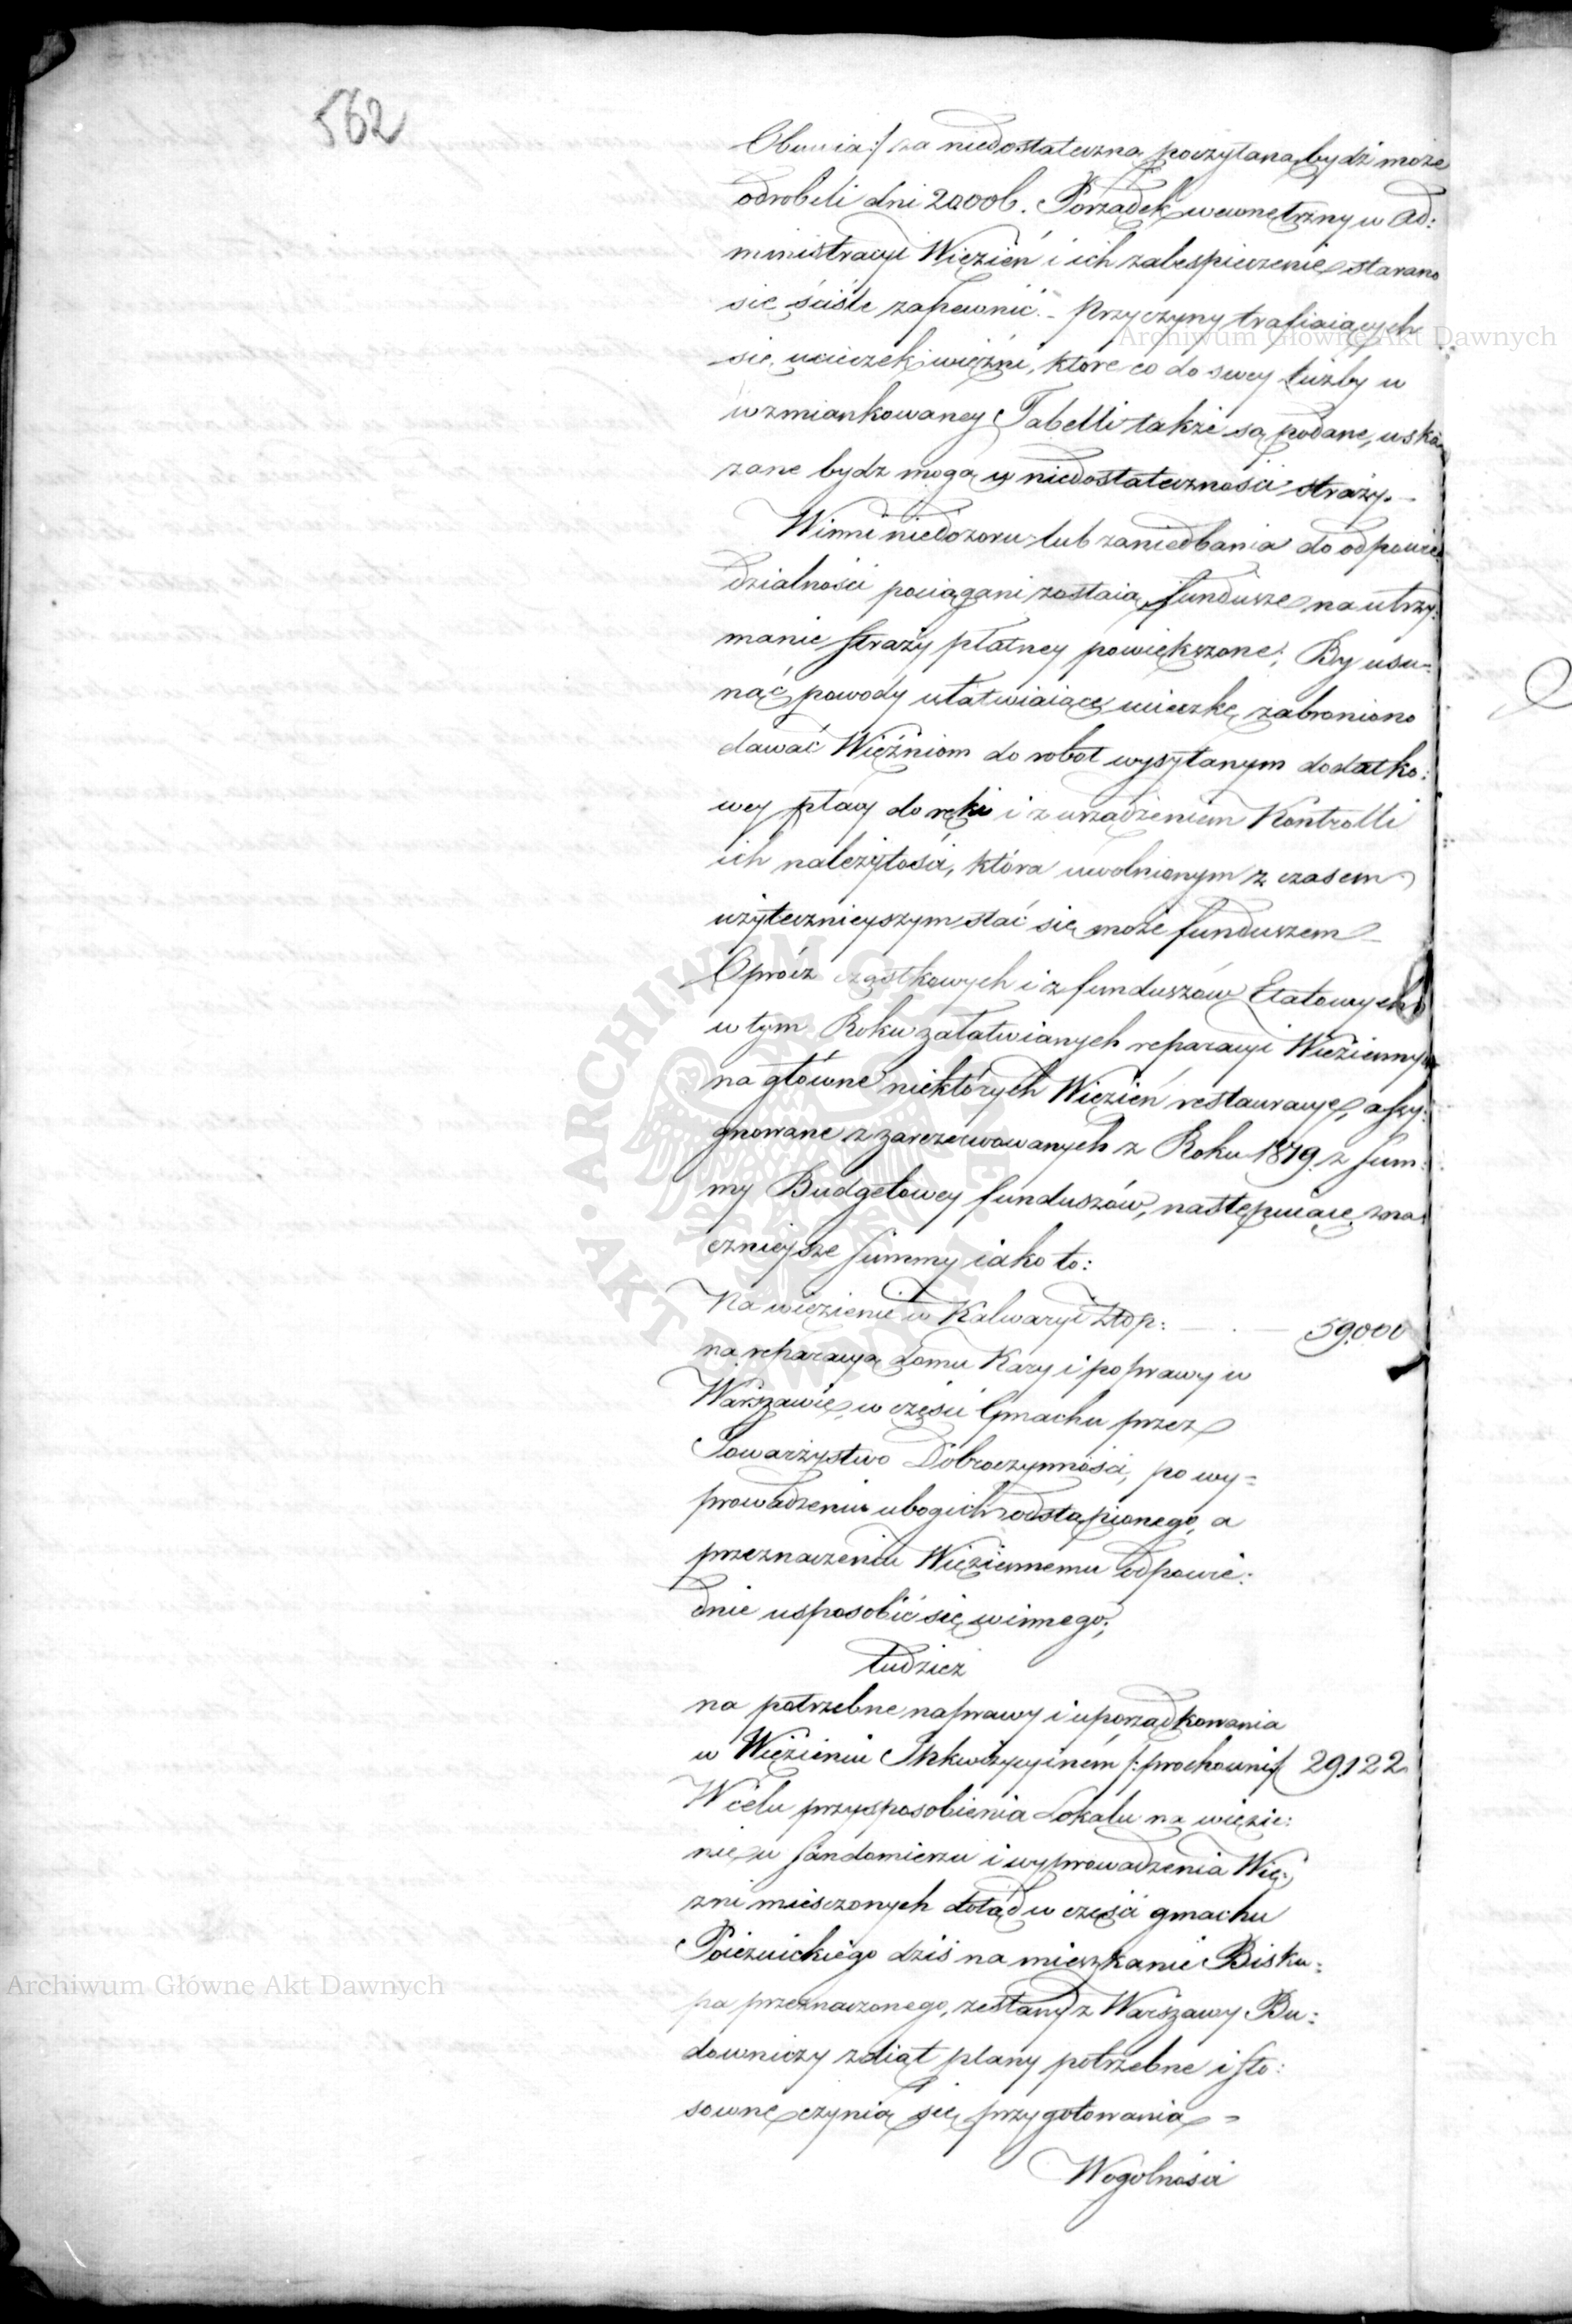 562
Obuwia:/ za niedostateczną poczytaną bydź może
odrobili dni 20006. Porządek wewnętrzny w Ad:
ministracyi Więzień i ich zabespieczenie starano
się ściśle zapewnić. – Przyczyny trafiaiących
się ucieczek więźni, które co do swey liczby w
wzmiankowaney Tabelli także są podane, wska
zane bydz mogą w niedostateczności straży. –
Winni niedozoru lub zaniedbania do odpowie
dzialności pociągani zostaią, fundusze na utrzy:
manie straży płatney powiększone; By usu=
nąć powody ułatwiaiące ucieczkę zabroniono
dawać Więźniom do robot wysyłanym dodatko:
wey płacy do ręki i z urządzeniem Kontrolli
ich należytości, która uwolnionym z czasem
użytecznieyszym stać się może funduszem –
Oprócz cząstkowych i z funduszów Etatowych
w tym Roku załatwianych reparacyi Więziennych
na główne niektórych Więzień restauracye, assy:
gnowane z zarezerwowanych z Roku 1819 z Sum:
my Budgetowey funduszów, następuiące zna:
cznieysze Summy iako to:
Na więzienie w Kalwaryi Złp: – . – 59.000
na reparacyą domu Kary i poprawy w
Warszawie, w części Gmachu przez
Towarzystwo Dobroczynności, po wy=
prowadzeniu ubogich odstąpionego, a
przeznaczeniu Więziennemu odpowie:
dnie usposobić się winnego;
tudzież
na potrzebne naprawy i uporządkowania
w Więzieniu Inkwizycyiném /:prochowni/ 29,122
W celu przysposobienia Lokalu na więzie:
nie w Sandomierzu i wyprowadzenia Wię:
zni mieszczonych dotąd w części gmachu
Poiezuickiego dziś na mieszkanie Bisku:
pa przeznaczonego, zesłany z Warszawy Bu:
downiczy zdiął plany potrzebne i sto:
sowne czynią się przygotowania =
Wogolności
Archiwum Główne Akt Dawnych
Archiwum Główne Akt Dawnych
ARCHIWUM GŁÓWNE
· AKT DAWNYCH ·